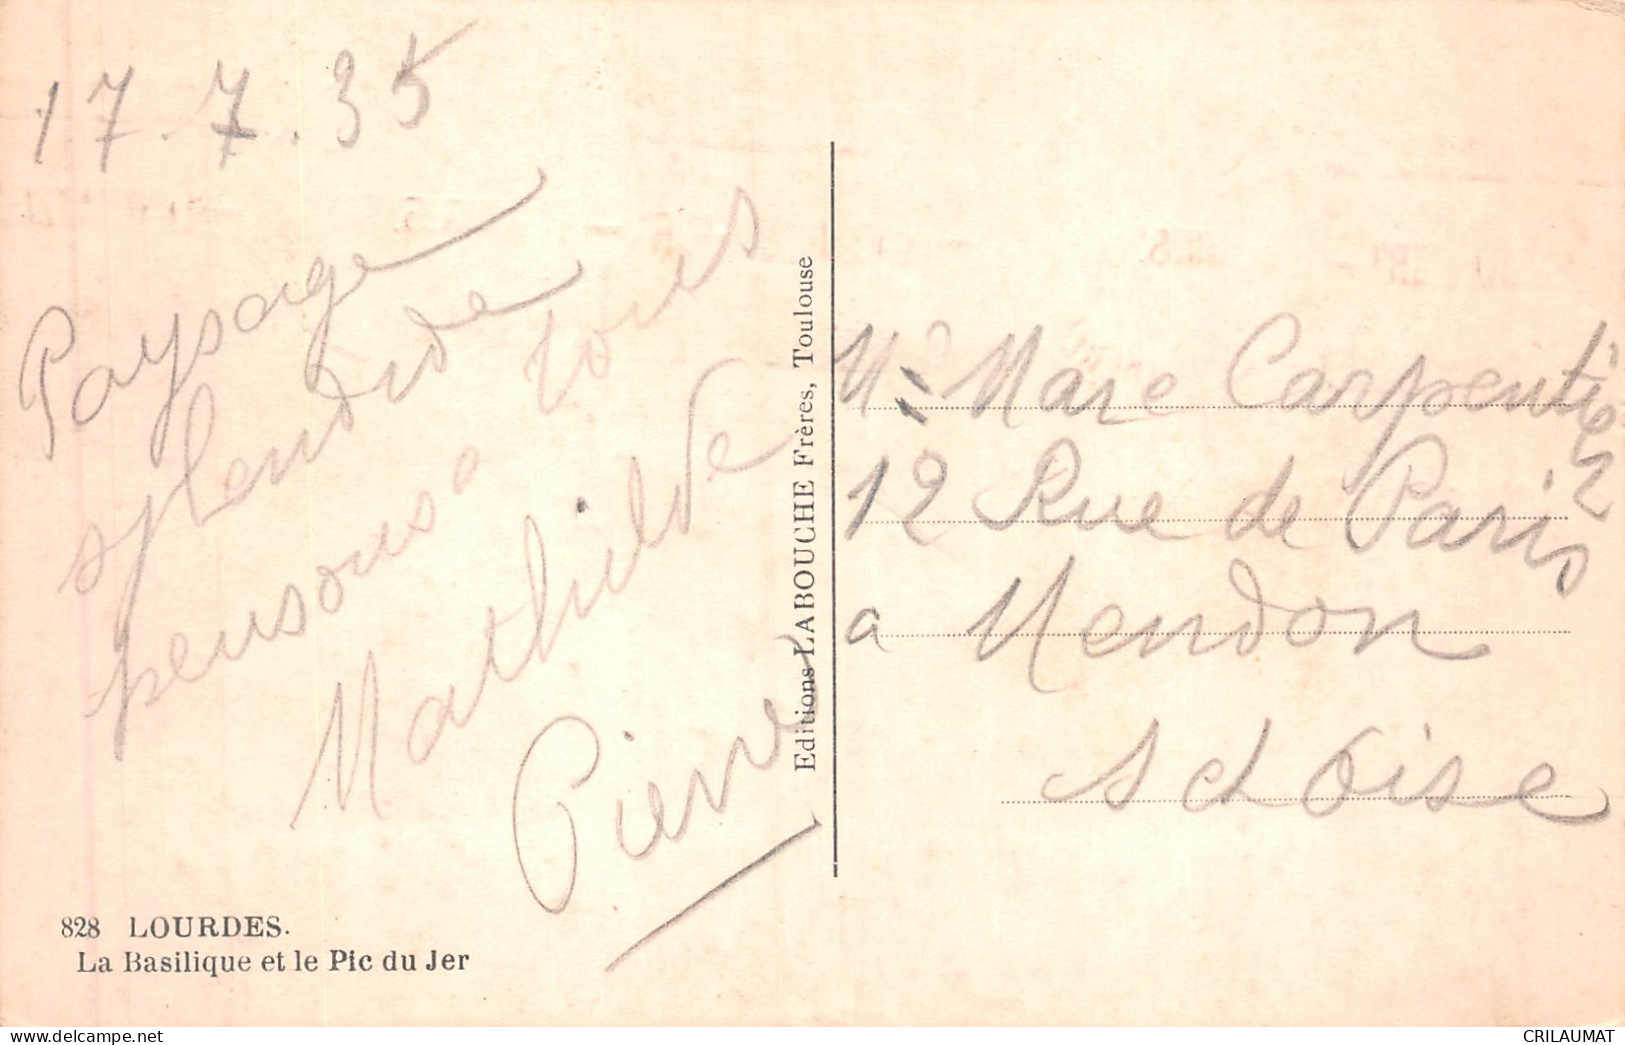 17.7.35
Paysage
splendide
pensons à tous
Mathilde
Pierre
828 LOURDES.
La Basilique et le Pic du Jer
Editions LABOUCHE Frères, Toulouse
Mr Marc Carpentier
12 Rue de Paris
a Meudon
S et Oise
CRILAUMAT
delcampe.net